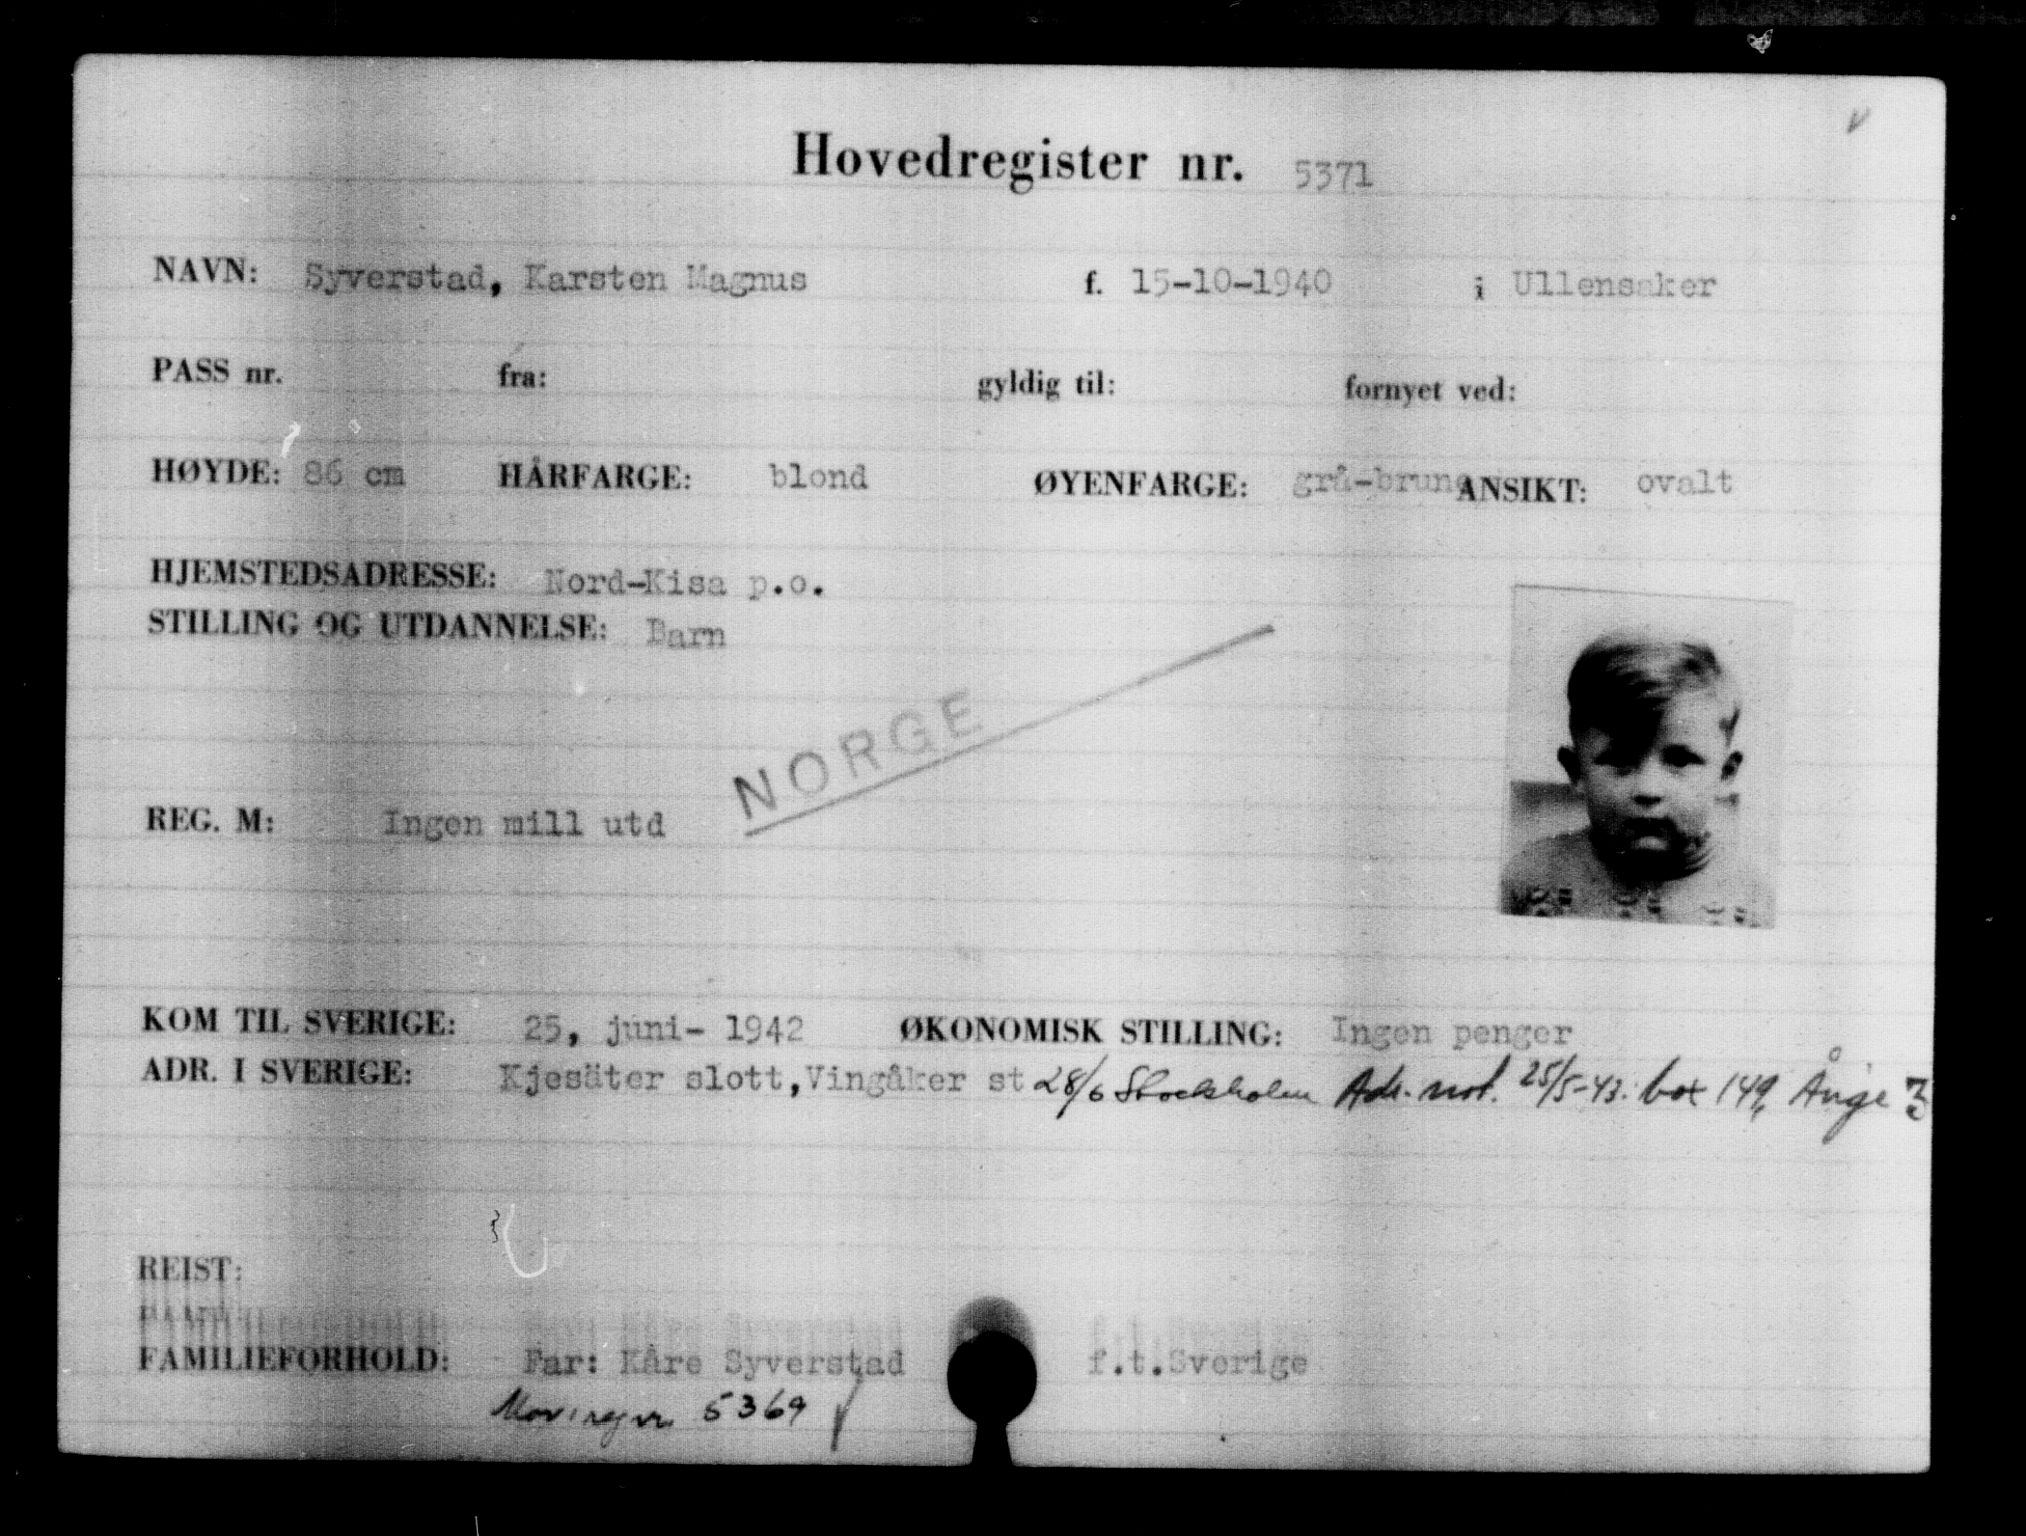 Hovedregister nr. 5371
NAVN: Syverstad, Karsten Magnus f. 15-10-1940 i Ullensaker
PASS nr. fra: gyldig til: fornyet ved:
HØYDE: 86 cm HÅRFARGE: blond ØYENFARGE: grå-brune ANSIKT: ovalt
HJEMSTEDSADRESSE: Nord-Kisa p.o.
STILLING OG UTDANNELSE: Barn
NORGE
REG. M: Ingen mill utd
KOM TIL SVERIGE: 25, juni- 1942 ØKONOMISK STILLING: Ingen penger
ADR. I SVERIGE: Kjesäter slott, Vingåker st 28/6 Stockholm Adr. not. 25/5-43. box 149, Ånge 3
REIST:
FAMILIEFORHOLD: Far: Kåre Syverstad f.t.Sverige
Mor: regnr. 5369